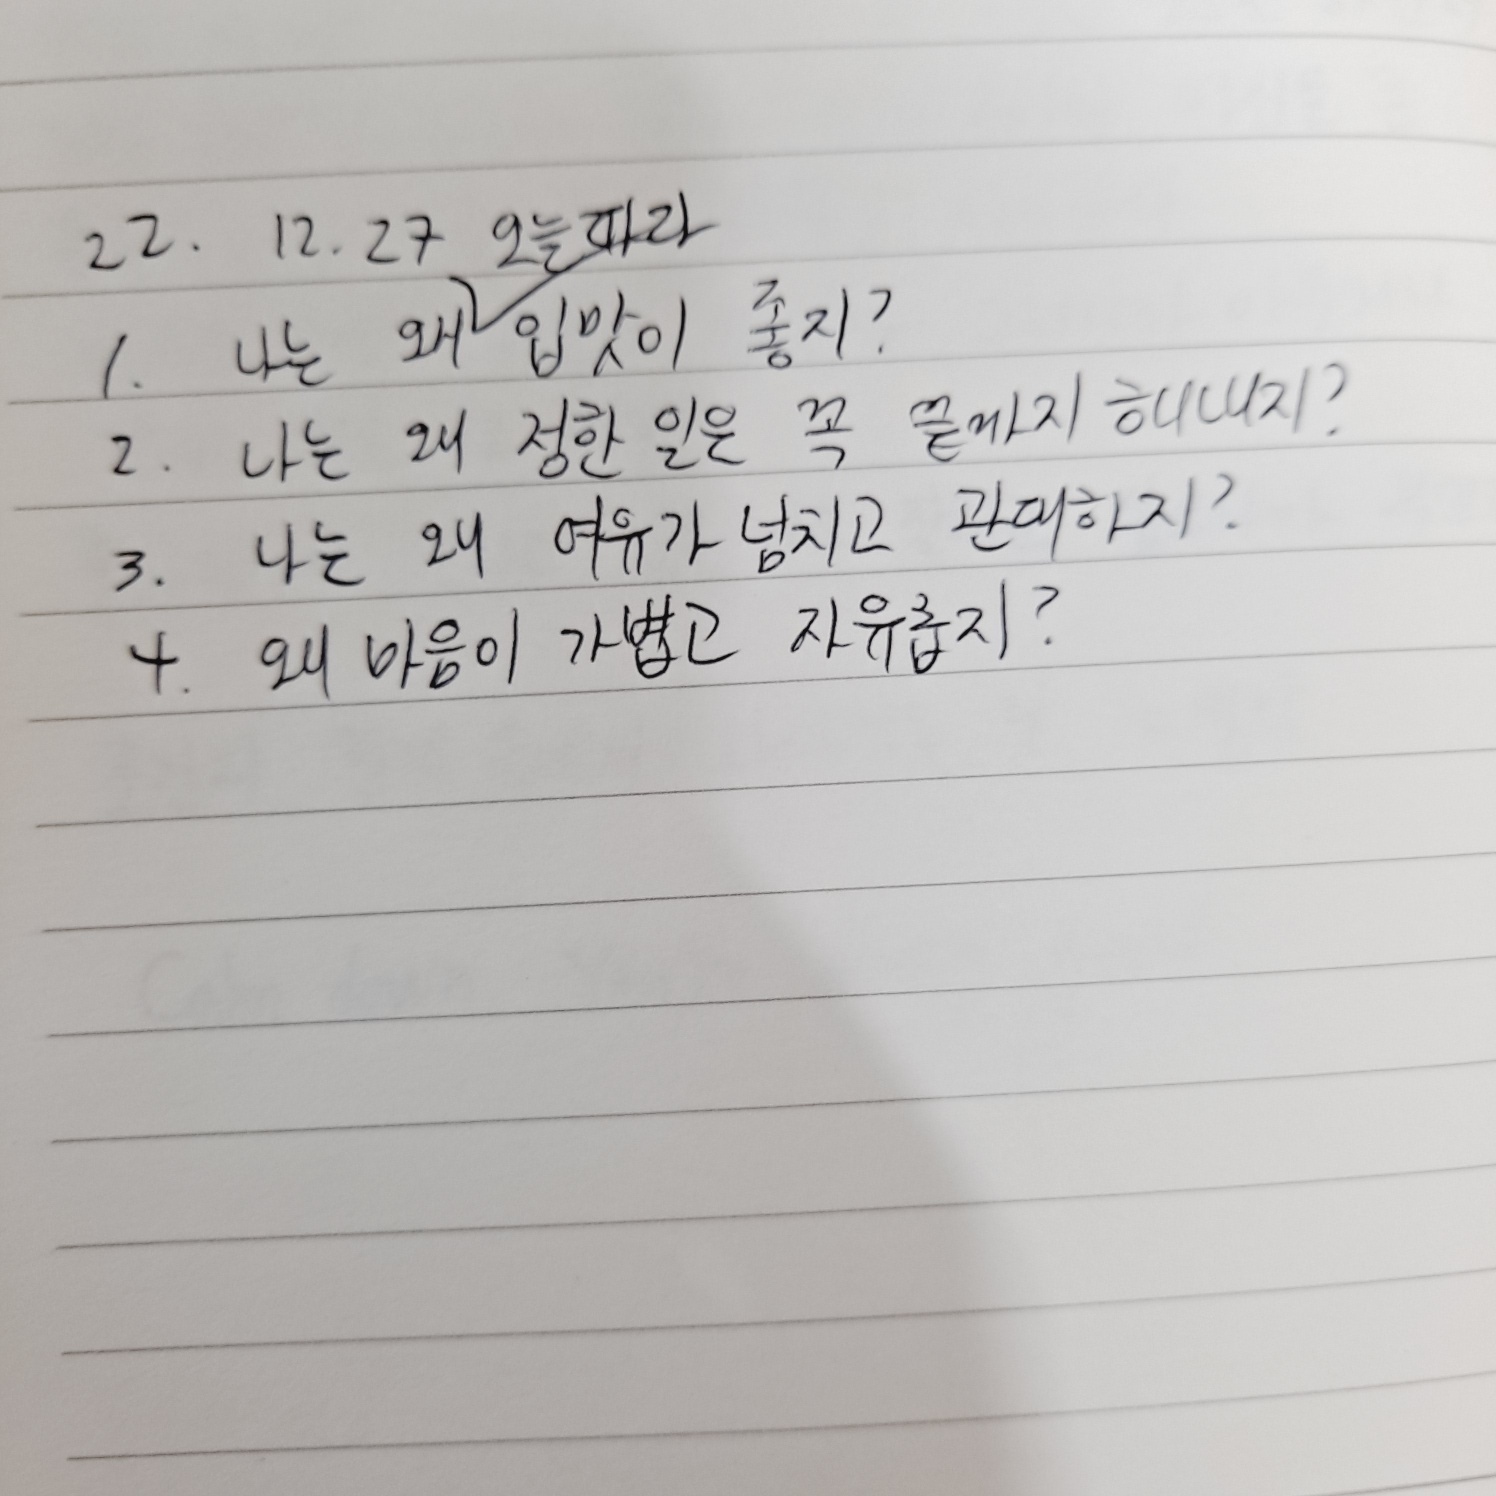 22. 12.27 오늘따라
1. 나는 왜 입맛이 좋지?
2. 나는 왜 정한 일은 꼭 끝까지 해내지?
3. 나는 왜 여유가 넘치고 관대하지?
4. 왜 마음이 가볍고 자유롭지?
Calm down